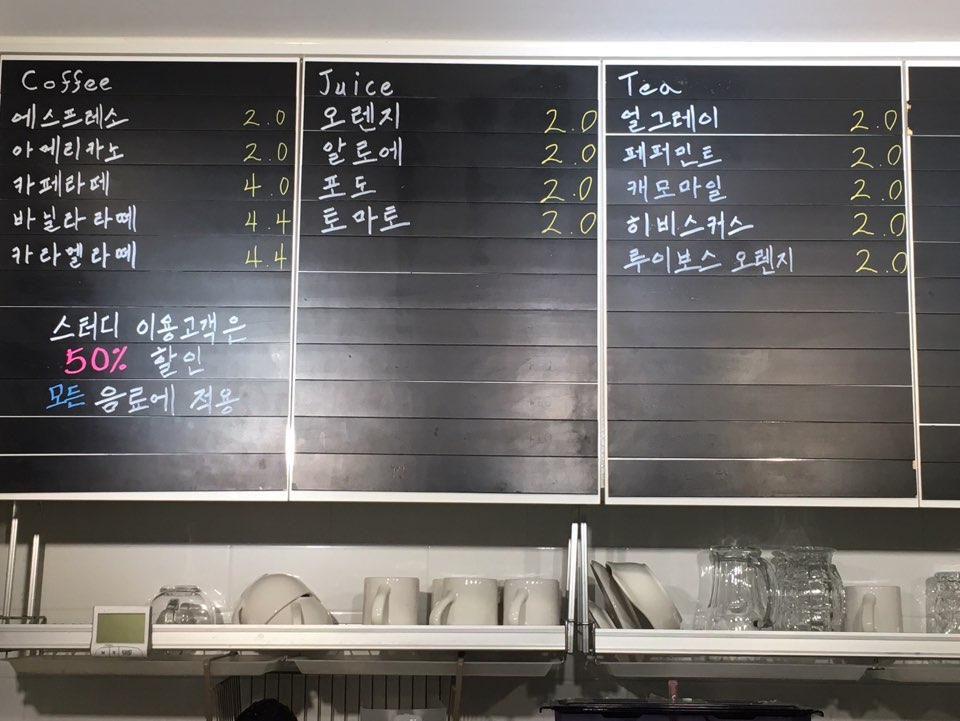 Coffee
에스프레소 2.0
아메리카노 2.0
카페라떼 4.0
바닐라라떼 4.4
카라멜라떼 4.4
스터디 이용고객은
50% 할인
모든 음료에 적용
Juice
오렌지 2.0
알로에 2.0
포도 2.0
토마토 2.0
Tea
얼그레이 2.0
페퍼민트 2.0
캐모마일 2.0
히비스커스 2.0
루이보스 오렌지 2.0